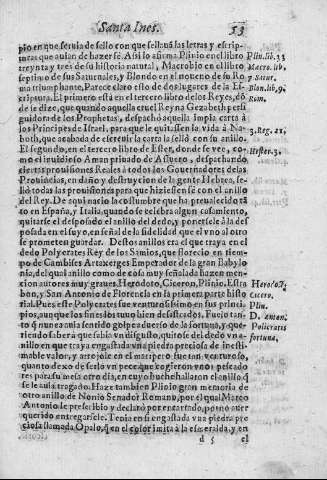 Santa Ines. 53
pio en que seruia de sello con que sellauã las letras y escrip-
turas que auian de hazer fè. Assi lo afirma Plinio en el libro Plin. lib. 33
treynta y tres de su historia natural, Macrobio en el libro Macro. lib.
septimo de sus Saturnales, y Blondo en el noueno de su Ro- 7 Satur.
ma triumphante. Parece claro esto de dos lugares de la Es- Blon. lib. 9.
criptura. El primero està en el tercero libro de los Reyes, dõ Rom.
de vemos, que quando aquella cruel Reyna Gezabeth persi
guidora de los Prophetas, despachò aquella impia carta à
los Principes de Israel, para que le quitassen la vida à Na-
both, que acabada de escreuir la carta la sellò con su anillo. 3. Reg. 21.
El segundo, en el tercero libro de Ester, donde se vee, co- Hester. 3.
mo el inuidioso Aman priuado de Assuero, despachando
ciertas prouisiones Reales à todos los Gouernadores de las
Prouincias, en daño y destruycion de la gente Hebrea, se-
llò todas las prouisiones para que hiziessen fè con el anillo
del Rey. De aqui nacio la costumbre que ha preualecido tã
to en España, y Italia, quando se celebra algun casamiento,
quitarse el desposado el anillo del dedo, y ponersele à la des
posada en el suyo, en señal de la fidelidad que el vno al otro
se prometen guardar. Destos anillos era el que traya en el
dedo Polycrates Rey de los Simios, que florecio en tiem-
po de Cambises Artaxerges Emperador de la gran Babylo
nia, del qual anillo como de cosa muy señalada hazen men-
cion autores muy graues. Herodoto, Ciceron, Plinio, Estra Herodot.
bon, y San Antonio de Florencia en la primera parte histo Cicero.
rial. Pues este Polycrates fue venturosissimo en sus princi- Plin.
pios, aunque los fines los tuuo bien desastrados. Fue lo tan- D. Anton.
to q̃ nunca auia sentido golpe aduerso de la fortuna, y que- Policratis
riendo saber a que sabia vn disgusto, quitose del dedo vn a- fortuna.
nillo en que traya engastada vna piedra preciosa de inesti-
mable valor, y arrojole en el mar: pero fue tan venturoso,
quanto dexo de serlo vn pece que cogieron vnos pescado
res para su mesa otro dia, en cuyo buche hallaron el anillo q̃
se le auia tragado. Haze tambien Plinio gran memoria de
otro anillo de Nonio Senador Romano, por el qual Marco
Antonio le prescribio y declarò por encartado, por no auer
querido entregarsele. Tenia en si engastada vna piedra pre
ciosa llamada Opalo, q̃ en el color imita à la esmeralda, y en
d 5 el